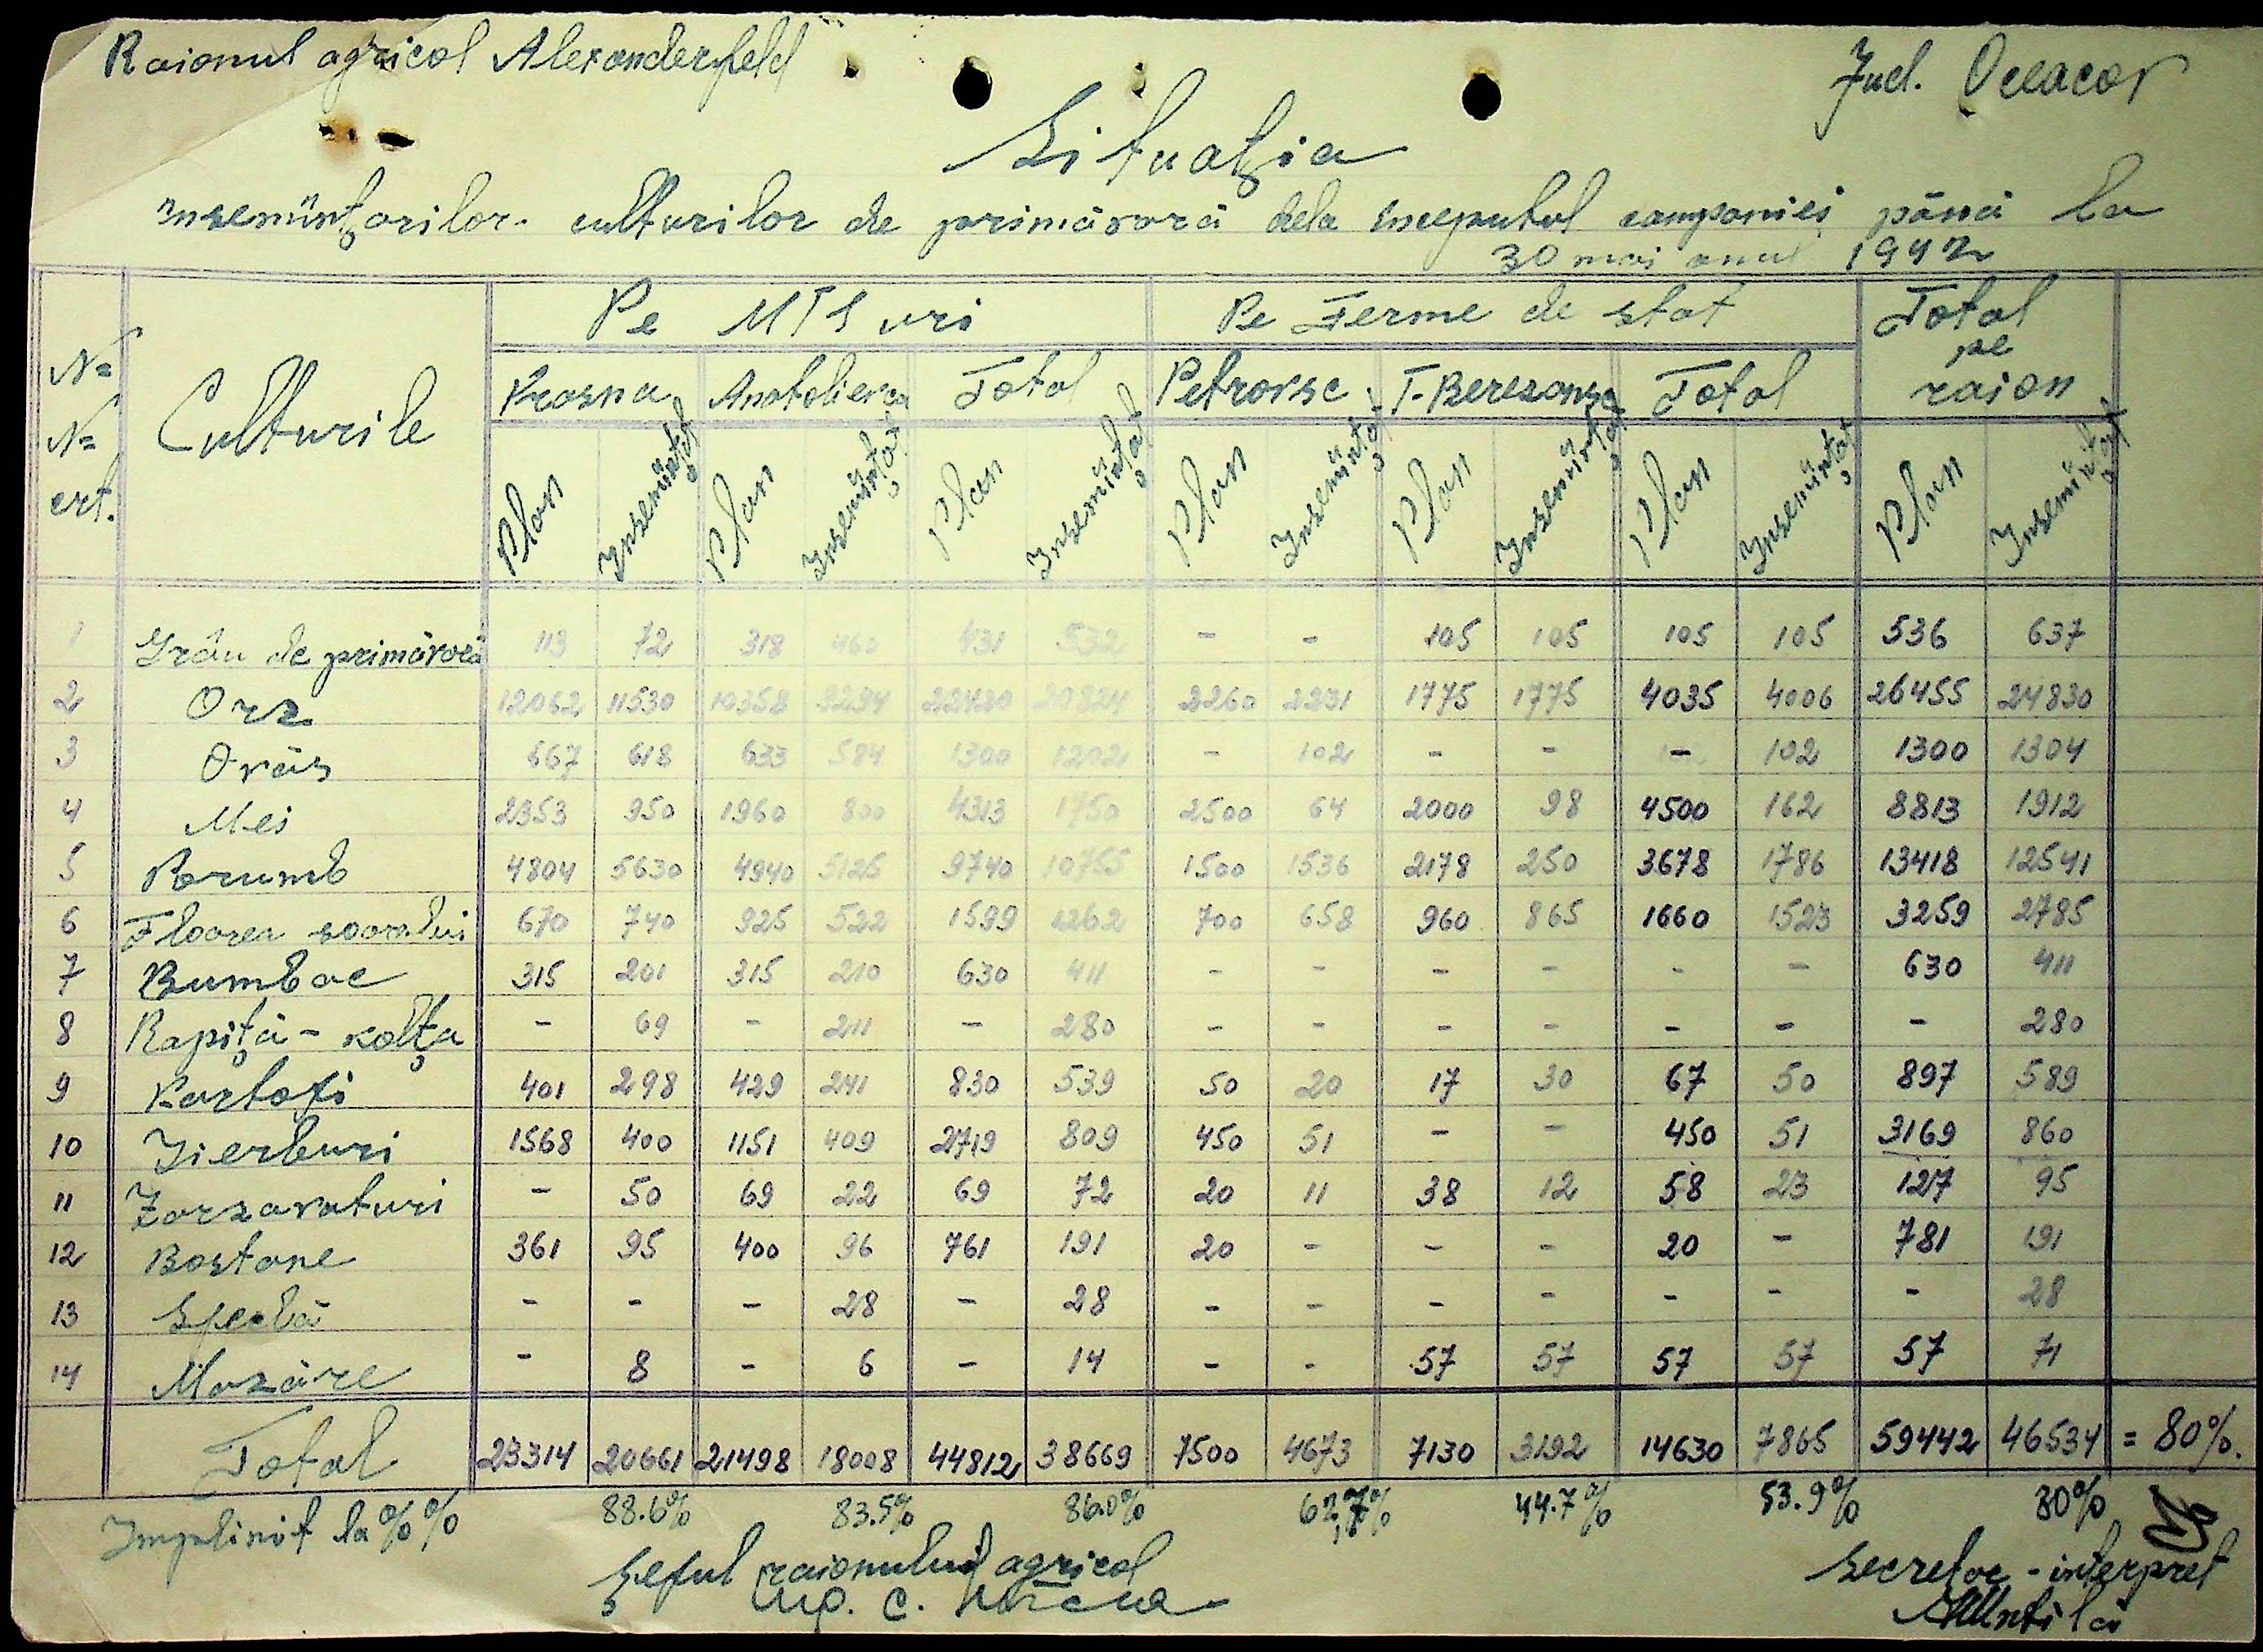 Raionul agricol Alexanderfeld
Jud. Oceacov
Situația
însemînțărilor culturilor de primăvară dela începutul campaniei până la
30 mai anul 1942
N= N= crt. Culturile Pe MTS uri Pe Ferme de stat Total pe raion
Krasna Anatolievca Total Petrovsc T-Berezansc Total
Plan Însemînțat Plan Însemînțat Plan Însemînțat Plan Însemînțat Plan Însemînțat Plan Însemînțat Plan Însemînțat
1 Grâu de primăvară 113 72 318 460 431 532 - - 105 105 105 105 536 637
2 Orz 12062 11530 10358 9294 22420 20824 2260 2231 1775 1775 4035 4006 26455 24830
3 Ovăs 667 618 633 584 1300 1202 - 102 - - - 102 1300 1304
4 Mei 2353 950 1960 800 4313 1750 2500 64 2000 98 4500 162 8813 1912
5 Porumb 4804 5630 4940 5125 9740 10755 1500 1536 2178 250 3678 1786 13418 12541
6 Floarea soarelui 670 740 925 522 1599 1262 700 658 960 865 1660 1523 3259 2785
7 Bumbac 315 201 315 210 630 411 - - - - - - 630 411
8 Rapiță - colța - 69 - 211 - 280 - - - - - - - 280
9 Kartofi 401 298 429 241 830 539 50 20 17 30 67 50 897 589
10 Jierburi 1568 400 1151 409 2719 809 450 51 - - 450 51 3169 860
11 Zarzavaturi - 50 69 22 69 72 20 11 38 12 58 23 127 95
12 Bostane 361 95 400 96 761 191 20 - - - 20 - 781 191
13 Sfeclă - - - 28 - 28 - - - - - - - 28
14 Mazăre - 8 - 6 - 14 - - 57 57 57 57 57 71
Total 23314 20661 21498 18008 44812 38669 7500 4673 7130 3192 14630 7865 59442 46534 = 80%.
Implinit la %% 88.6% 83.5% 86.0% 62,7% 44.7% 53.9% 80%
Șeful raionului agricol
Secretar - interpret